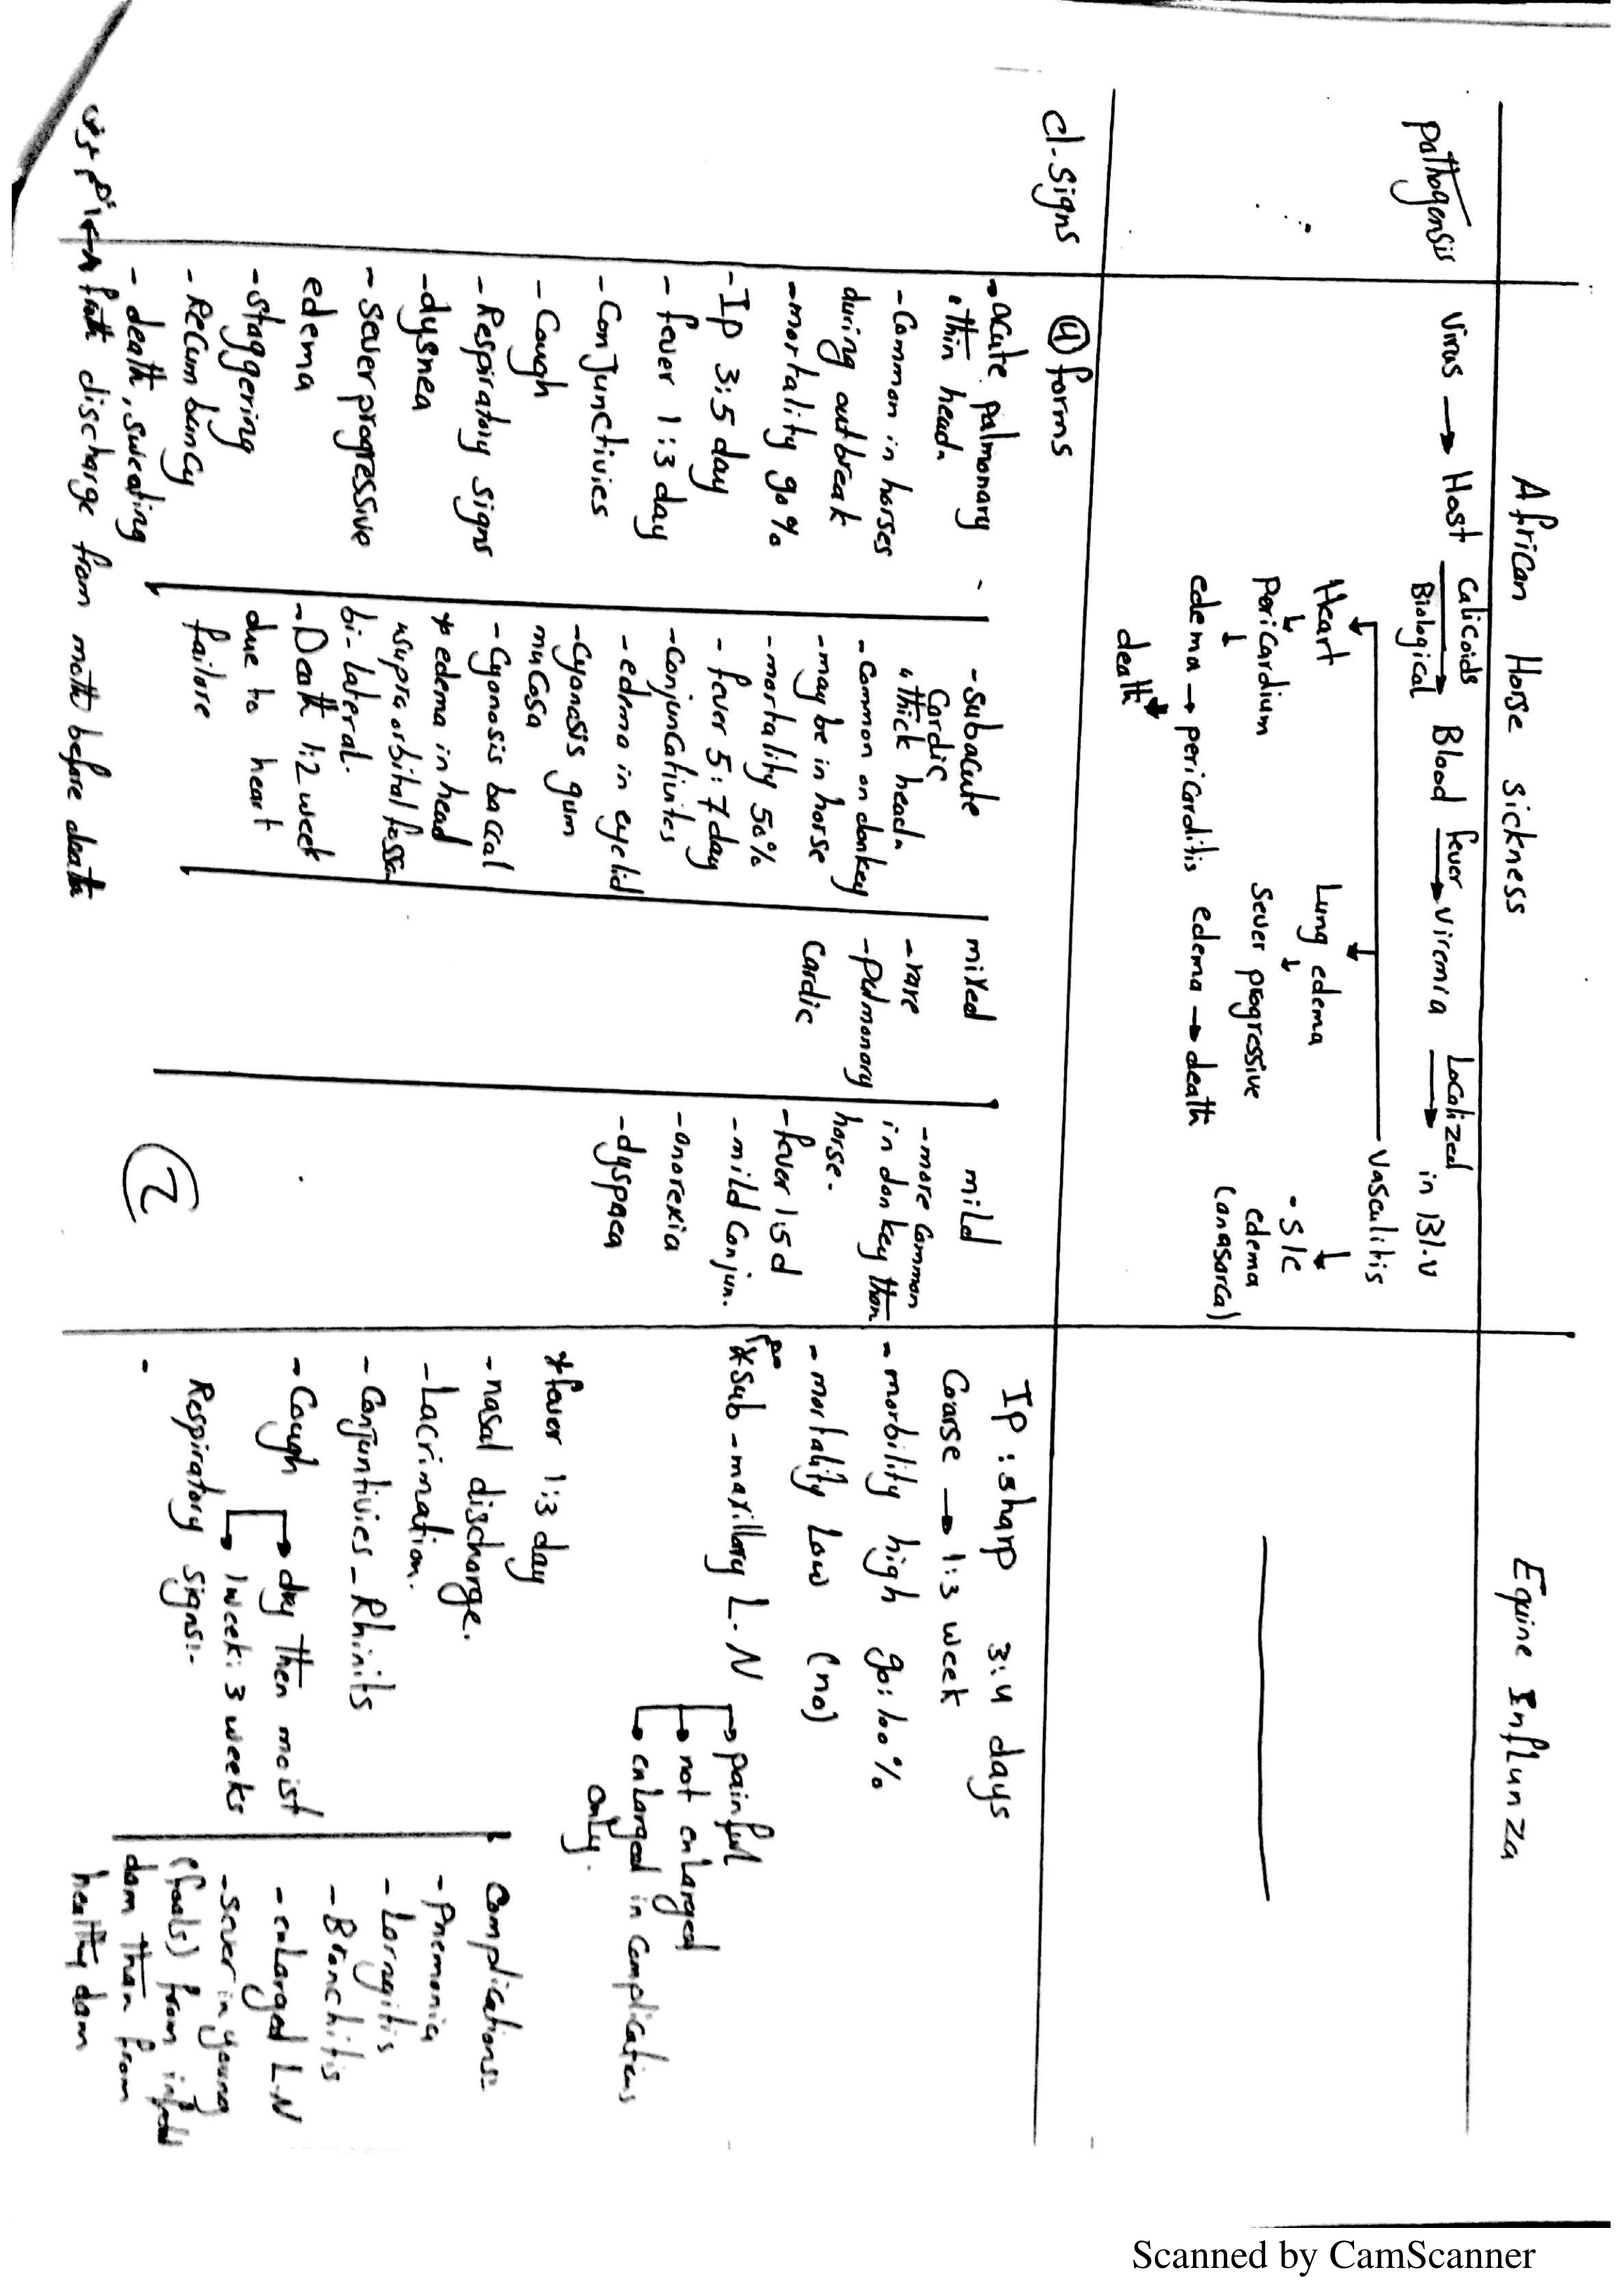 African Horse sickness
Equine Influnza
pathogensis
Virus → Host Calicoids Biological → Blood fever → viremia Localized → in Bl.v
Vasculitis
Heart
↓
pericardium
↓
edema → pericarditis
death
Lung edema
↓
Sever progressive
edema → death
- S/C
edema
(anasarca)
cl-signs
④ forms
- acute palmonary
"thin head"
- Common in horses
during outbreak
- mortality 90%
- IP 3:5 day
- fever 1:3 day
- Conjunctivies
- Cough
- Respiratory signs
- dysnea
- Sever progressive
edema
- staggering
- Recumbency
- death, sweating
froth discharge from moth before death
- Subacute
Cardic
"thick head"
- Common on donkey
- may be in horse
- mortality 50%
- fever 5:7 day
- Conjuncativites
- edema in eyelid
- Cyanosis gum
mucosa
- Cyanosis baccal
* edema in head
supra orbital fossa
bi-lateral.
- Death 1:2 week
due to heart
failore
mixed
- rare
- pulmonary
Cardic
mild
- more common
in donkey than
horse.
- fever 1:5 d
- mild Conjun.
- anorexia
- dyspnea
IP : sharp 3:4 days
Coarse → 1:3 week
- morbility high 90:100%
- mortality Low (no)
* Sub-maxillary L.N
→ painful
→ not enlarged
→ enlarged in Complications
only.
* fever 1:3 day
- nasal discharge.
- Lacrimation.
- Conjuntivies - Rhinits
- Cough → dry then moist
→ 1 week: 3 weeks
Respiratory signs:-
Complications:-
- Pnemonia
- Laryngitis
- Bronchitis
- enlarged L.N
- Sever in young
(foals) from infected
dam than from
healthy dam
2
Scanned by CamScanner